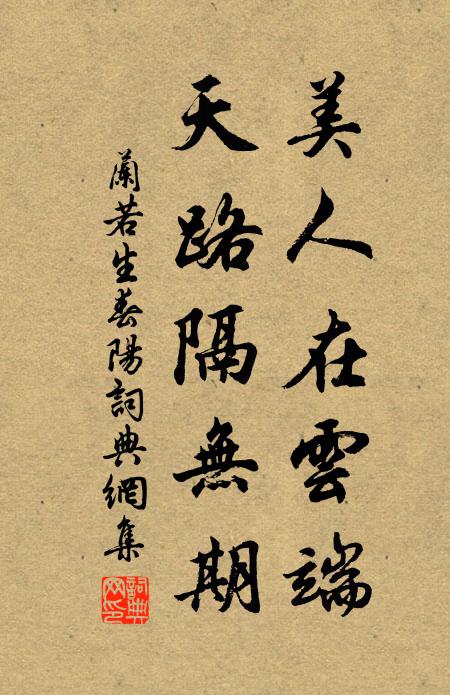 美人在雲端
天路隔無期
蘭若生春陽詞典網集
詞典
网印